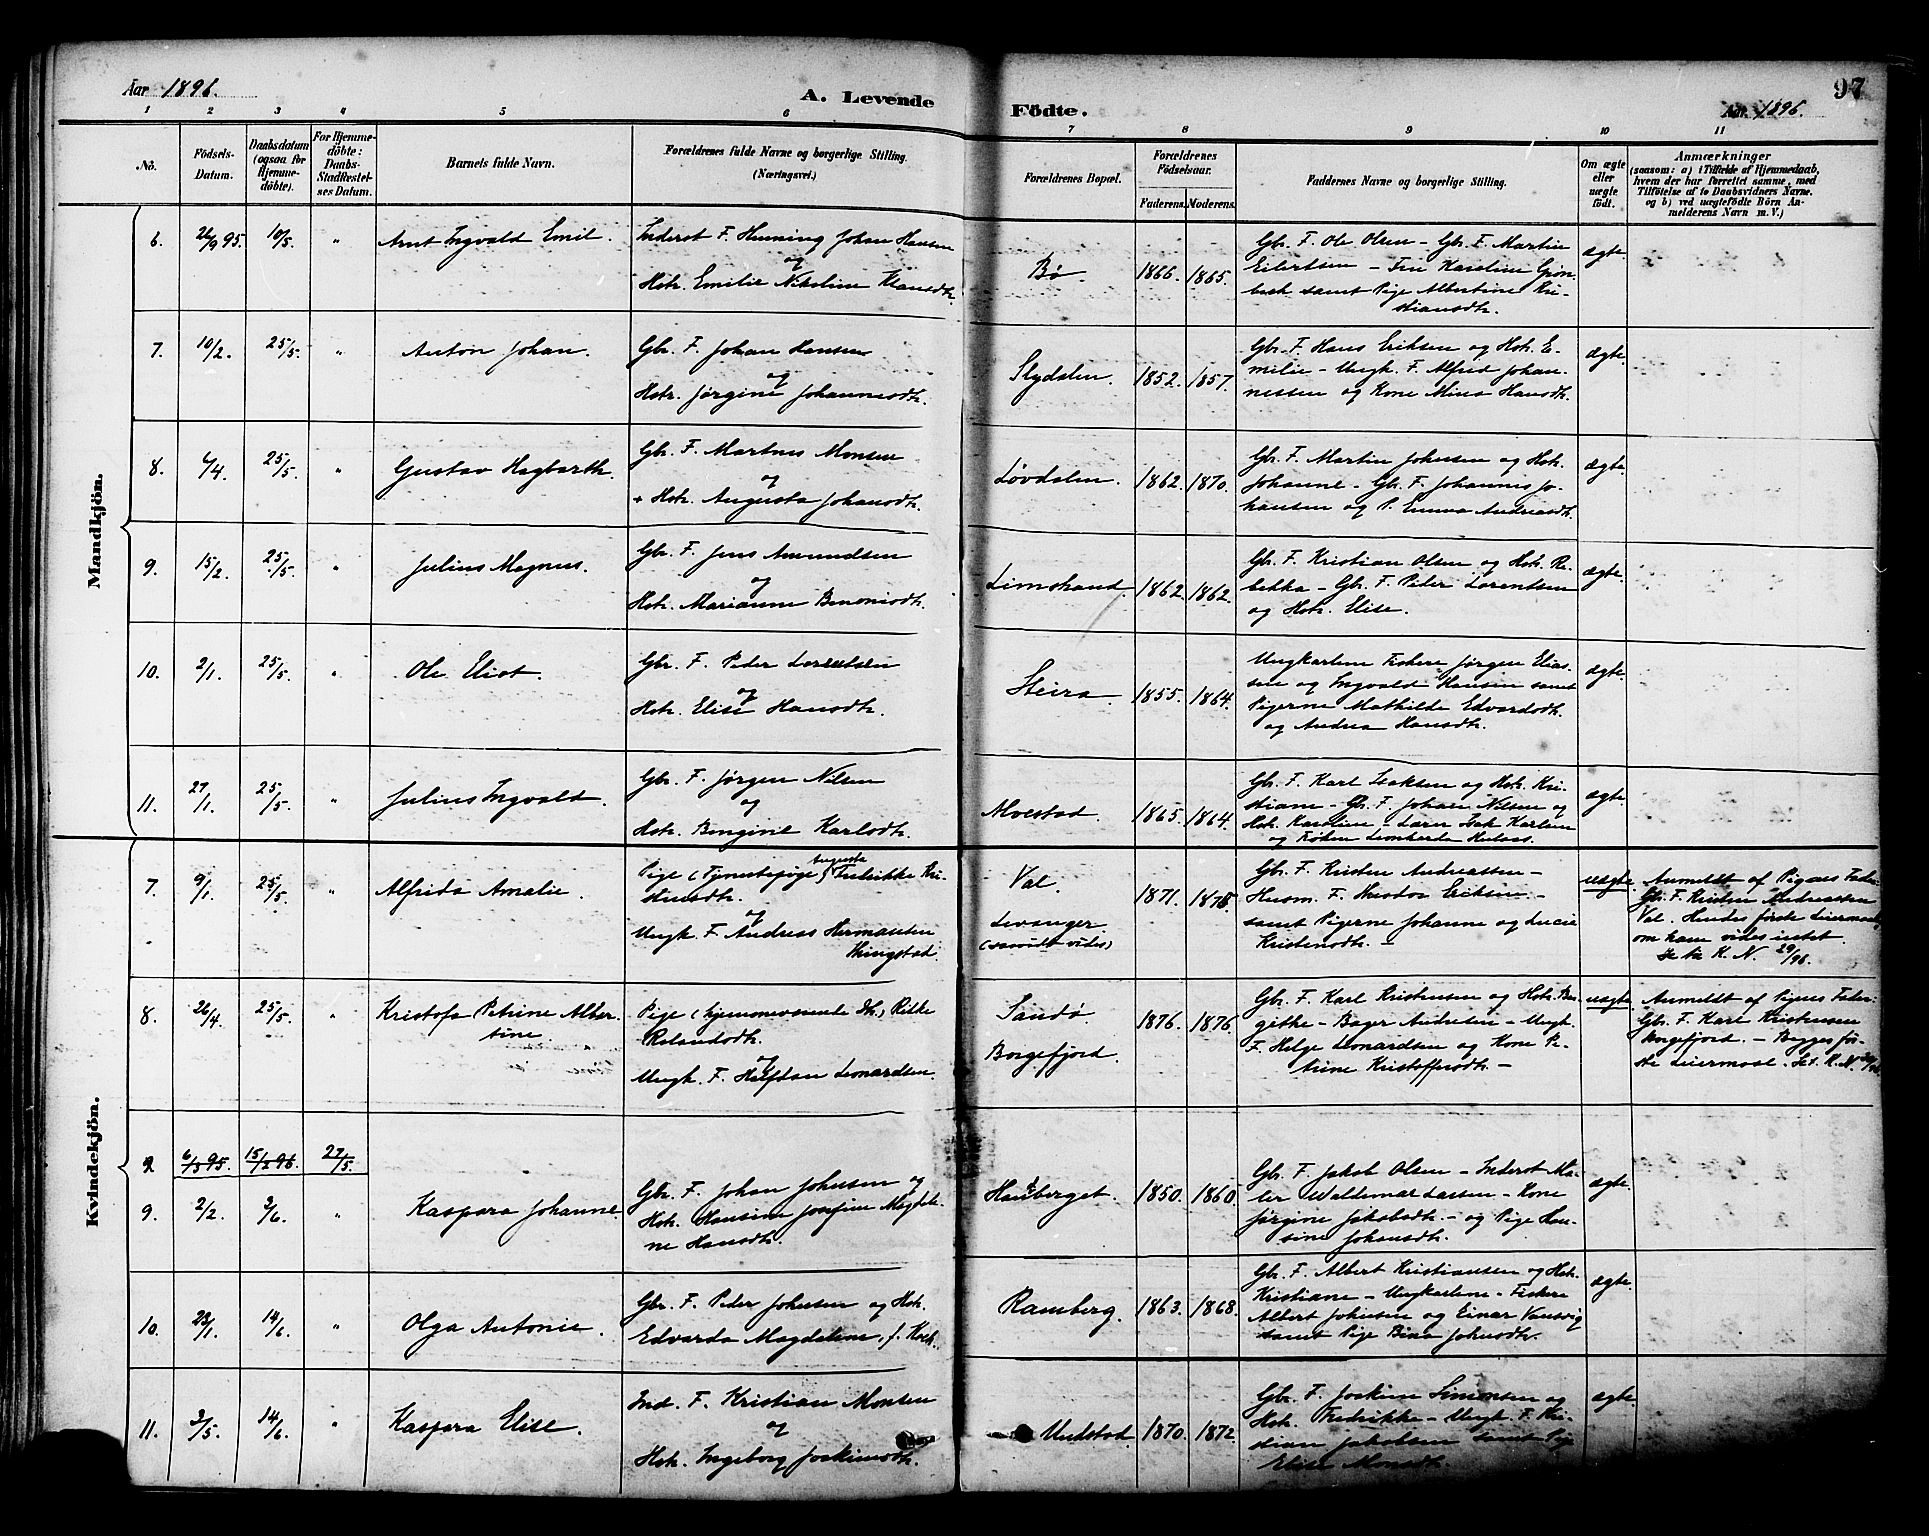 Aar 1896.
A. Levende
Födte.
Aar 1896.
97
1 2 3 4 5 6 7 8 9 10 11
No.
Födsels-Datum.
Daabsdatum (ogsaa for Hjemme-döbte).
For Hjemme-döbte: Daabs-Stadfæstel-ses Datum.
Barnets fulde Navn.
Forældrenes fulde Navne og borgerlige Stilling. (Næringsvei.)
Forældrenes Bopæl.
Forældrenes Födselsaar.
Faderens. Moderens.
Faddernes Navne og borgerlige Stilling.
Om ægte eller uægte födt.
Anmærkninger
(saasom: a) i Tilfælde af Hjemmedaab, hvem der har forrettet samme, med Tilföielse af to Daabsvidners Navne, og b) ved uægtefödte Börn An-melderens Navn m. V.)
Mandkjön.
6. 26/9 95. 10/5. " Arnt Ingvald Emil. Inderst F. Henning Johan Hansen
og
Hstr. Emilie Nikoline Klausdtr.
Bø 1866. 1865.
Gbr. F. Ole Olsen - Gbr. F. Martin
Eilertsen - Fru Karoline Grøn-
bech samt Pige Albertine Kri-
stiansdtr.
ægte.
7. 10/2. 25/5. " Anton Johan. Gbr. F. Johan Hansen
og
Hstr. Jørgine Johannesdtr.
Slydalen. 1852. 1857.
Gbr. F. Hans Eriksen og Hstr. E-
milie - Ungk. F. Alfred Johan-
nessen og Kone Mina Hansdtr.
ægte.
8. 6/4. 25/5. " Gustav Hagbarth. Gbr. F. Martnus Monsen
og
+ Hstr. Augusta Johansdtr.
Løvdalen. 1862. 1870.
Gbr. F. Martin Johnsen og Hstr.
Johanne - Gbr. F. Johannes Jo-
hansen og P. Emma Andreasdtr.
ægte.
9. 15/2. 25/5. " Julius Magnus. Gbr. F. Jens Amundsen
og
Hstr. Marianne Benoniсdtr.
Limstrand. 1862. 1862.
Gbr. F. Kristian Olsen og Hstr. Re-
bekka - Gbr. F. Peder Lorentsen
og Hstr. Elise.
ægte.
10. 2/1. 25/5. " Ole Eliot. Gbr. F. Peder Lorentsen
og
Hstr. Elise Hansdtr.
Steira. 1855. 1864.
Ungkarlene Fiskere Jørgen Elias-
sen og Ingvald Hansen samt
Pigerne Mathilde Edvardsdtr.
og Andrea Hansdtr.
ægte.
11. 27/1. 25/5. " Julius Ingvald. Gbr. F. Jørgen Nilsen
og
Hstr. Bergine Karlsdtr.
Alvestad. 1865. 1864.
Gbr. F. Karl Isaksen og Hstr. Kri-
stiane - Gbr. F. Johan Nilsen og
Hstr. Karoline - Lærer Isak Karlsen
og Frøken Leonharda
ægte.
Kvindekjön.
7. 9/1. 25/5. " Alfrida Amalie. Pige (Tjenestepige) Augusta Fredrikke Kri-
stensdtr.
og
Ungk. F. Andreas Hermansen
Ringstad.
Val
Levanger
1871. 1875.
Gbr. F. Kristen Andreassen -
Husm. F. Theodor Eriksen -
samt Pigerne Johanne og Lucie
Kristensdtr. -
uægte.
Anmeldt af Pigens Fader:
Gbr. F. Kristen Andreassen
Val. Hendes første Leiermaal,
om ham vides intet.
K. N. 29/98.
8. 26/4. 25/5. " Kristofa Petrine Alber-
tine.
Pige (hjemmeværende Dtr.) Rikke
Rolandsdtr.
og
Ungk. F. Halfdan Leonardsen.
Sandø.
Borgefjord.
1876. 1876.
Gbr. F. Karl Kristensen og Hstr. Ber-
githe - Bager Andresen - Ungk.
F. Helge Leonardsen og Kone Pe-
trine Kristoffersdtr. -
uægte.
Anmeldt af Pigens Fader:
Gbr. F. Karl Kristensen
Borgefjord. - Begges før-
ste Leiermaal.
9. 6/3 95. 15/2 96. 27/5.
9. 2/2. 2/6. " Kaspara Johanne. Gbr. F. Johan Johnsen og
Hstr. Hansine Josefine Magdale-
ne Hansdtr.
Haugberget. 1850. 1860.
Gbr. F. Jakob Olsen - Inderst Ma-
ler Waldemar Lassen - Kone
Jørgine Jakobsdtr. - og Pige Han-
sine Johnsdtr.
ægte.
10. 28/1. 14/6. " Olga Antonie. Gbr. F. Peder Johnsen og Hstr.
Edvarda Magdalene, f. Koch.
Ramberg. 1863. 1868.
Gbr. F. Albert Kristiansen og Hstr.
Kristiane - Ungkarlene - Fiskere
Albert Johnsen og Einar Vansvig
samt Pige Bina Johnsdtr.
ægte.
11. 2/5. 14/6. " Kaspara Elise. Ind. F. Kristian Monsen
og
Hstr. Ingeborg Joakimsdtr.
Unstad. 1870. 1872.
Gbr. F. Joakim Simonsen og
Hstr. Fredrikke - Ungk. F. Kri-
stian Jakobsen samt Pige
Elise Monsdtr.
ægte.